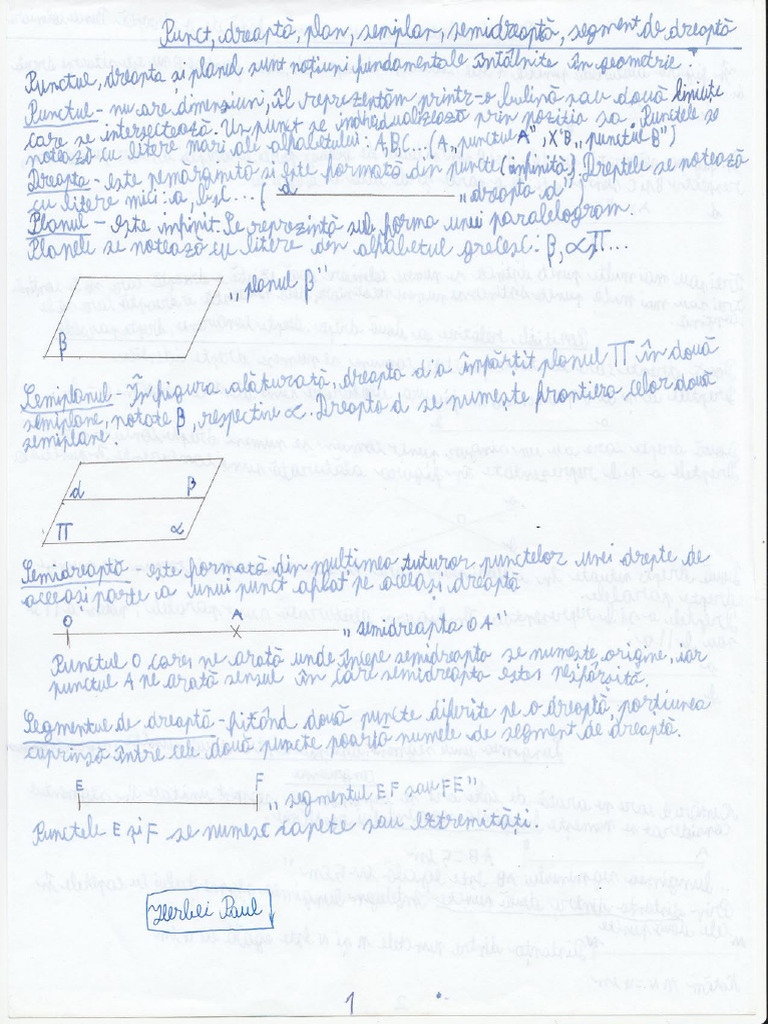 Punct, dreaptă, plan, semiplan, semidreaptă, segment de dreaptă
Punctul, dreapta și planul sunt noțiuni fundamentale întâlnite în geometrie.
Punctul - nu are dimensiuni, îl reprezentăm printr-o bulină sau două liniuțe
care se intersectează. Un punct se individualizează prin poziția sa. Punctele se
notează cu litere mari ale alfabetului: A, B, C... (A „punctul A”, X B „punctul B”)
Dreapta - este nemărginită și este formată din puncte (infinită). Dreptele se notează
cu litere mici: a, b, c... ( d „dreapta d”)
Planul - este infinit. Se reprezintă sub forma unui paralelogram.
Planele se notează cu litere din alfabetul grecesc: β, α, π...
„planul β”
β
Semiplanul - În figura alăturată, dreapta d a împărțit planul π în două
semiplane, notate β, respectiv α. Dreapta d se numește frontiera celor două
semiplane.
d β
π α
Semidreaptă - este formată din mulțimea tuturor punctelor unei drepte de
aceeași parte a unui punct aflat pe același dreaptă
O A „semidreapta OA”
Punctul O care ne arată unde începe semidreapta se numește origine, iar
punctul A ne arată sensul în care semidreapta este nesfârșită.
Segmentul de dreaptă - fixând două puncte diferite pe o dreaptă, porțiunea
cuprinsă între cele două puncte poartă numele de segment de dreaptă.
E F „segmentul EF sau FE”
Punctele E și F se numesc capete sau extremități.
Herbei Paul
1